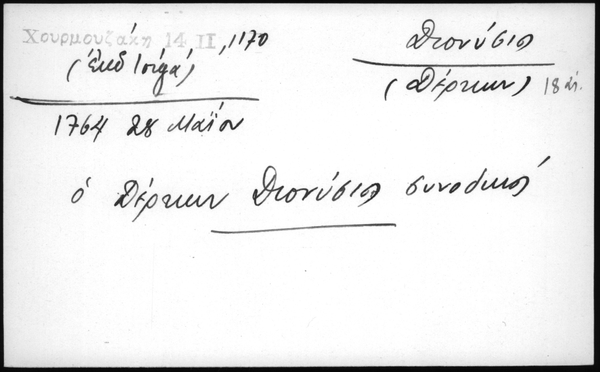 Χουρμουζάκη 14 II, 1170
(ἐκδ Ἰόργα)
1764 28 Μαΐου
Διονύσιος
(Δέρκων) 18 αἰ.
ὁ Δέρκων Διονύσιος συνοδικός